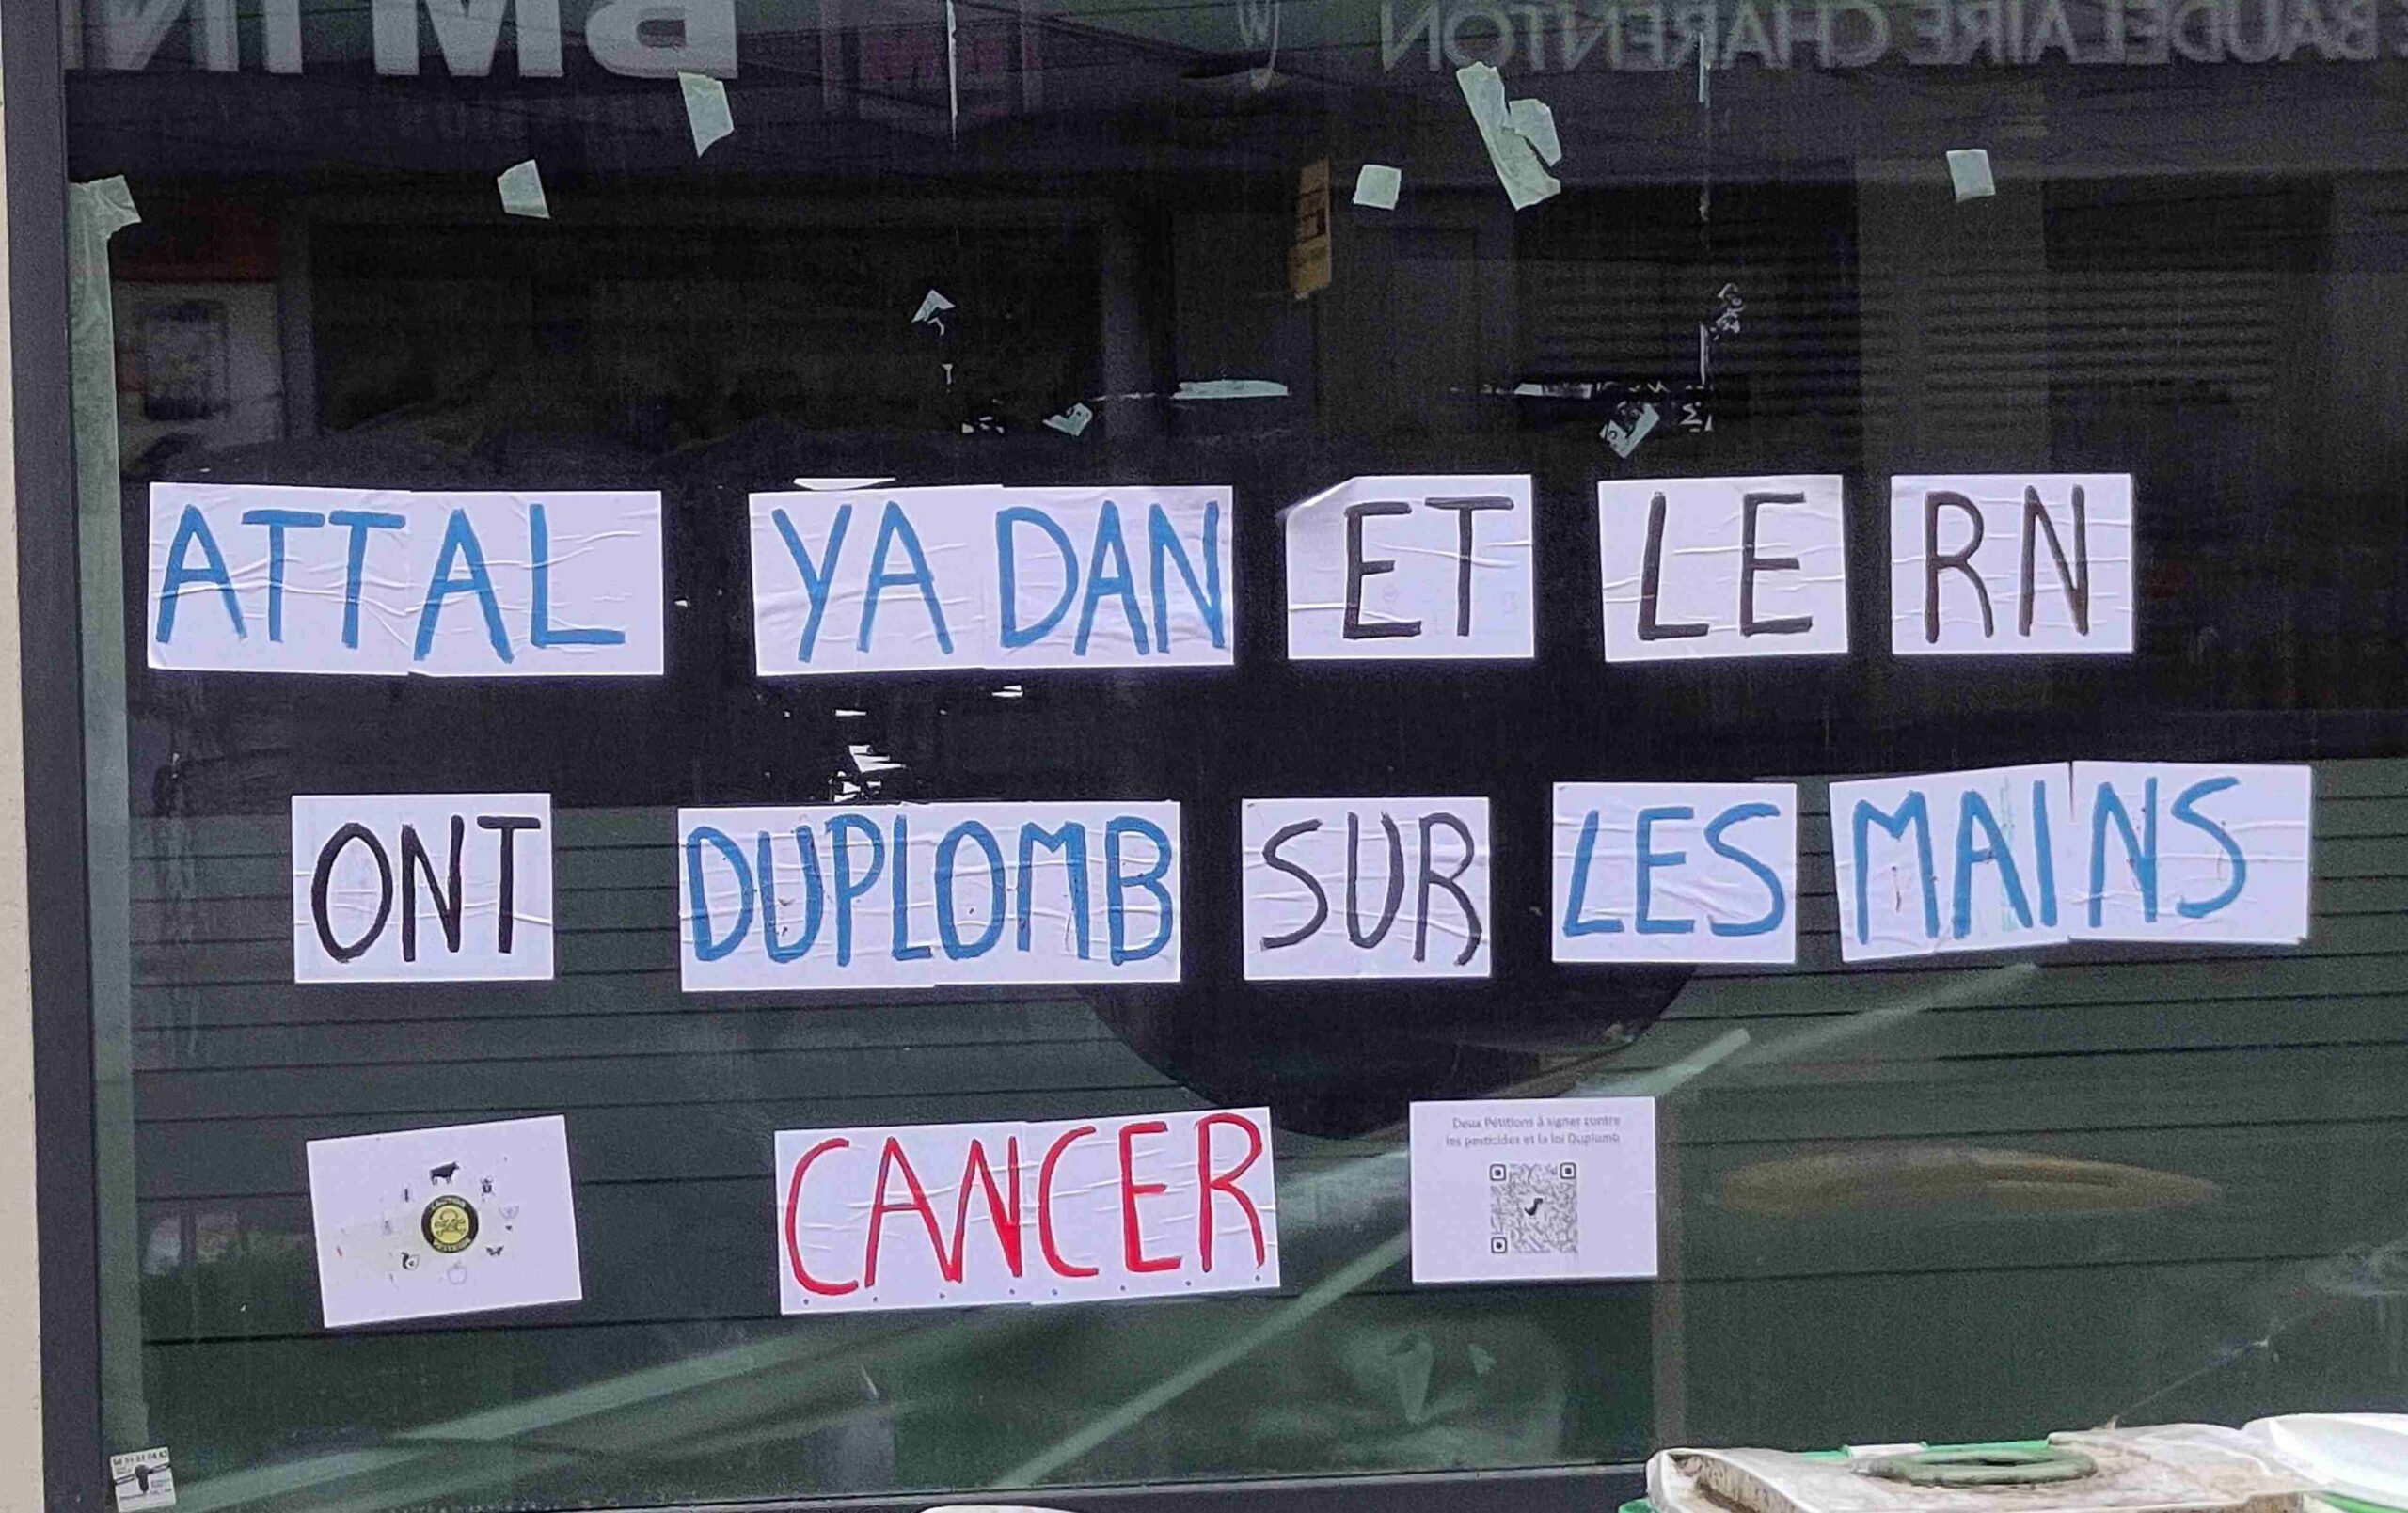 BAUDELAIRE CHARENTON
ATTAL YADAN ET LE RN
ONT DUPLOMB SUR LES MAINS
CANCER
Deux Pétitions à signer contre
les pesticides et la loi Duplomb